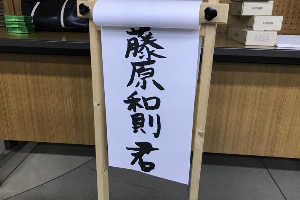 藤原和則君